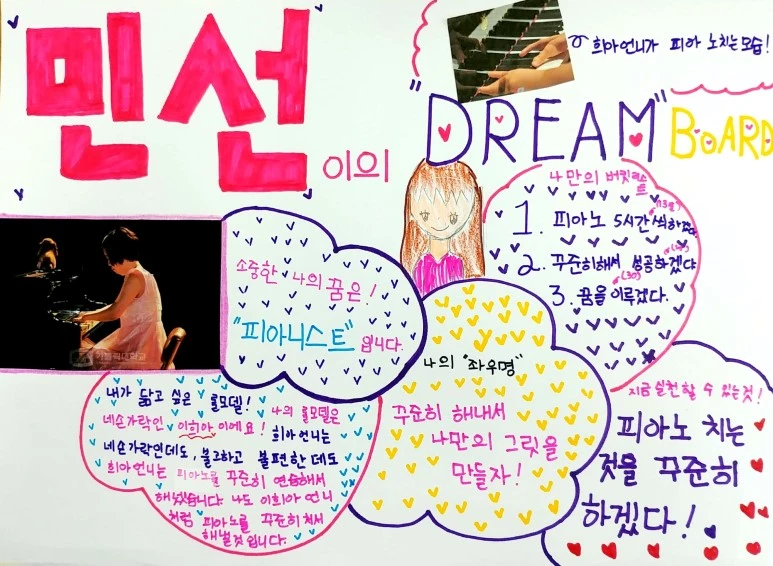 민선이의
희아언니가 피아노치는모습!
"DREAM" BOARD
나만의 버킷리스트
1. 피아노 5시간씩하겠다.
2. 꾸준히해서 성공하겠다
3. 꿈을 이루겠다.
(30)
소중한 나의 꿈은!
"피아니스트" 입니다.
가톨릭대학교
나의 "좌우명"
꾸준히 해내서
나만의 그릿을
만들자!
내가 닮고 싶은 롤모델! 나의 롤모델은
네손가락인 이희아 이에요! 희아언니는
네손가락인데도, 불구하고 불편한데도
희아언니는 피아노를 꾸준히 연습해서
해냈습니다. 나도 이희아 언니
처럼 피아노를 꾸준히 쳐서
해낼것입니다.
지금 실천할 수 있는것!
피아노 치는
것을 꾸준히
하겠다!